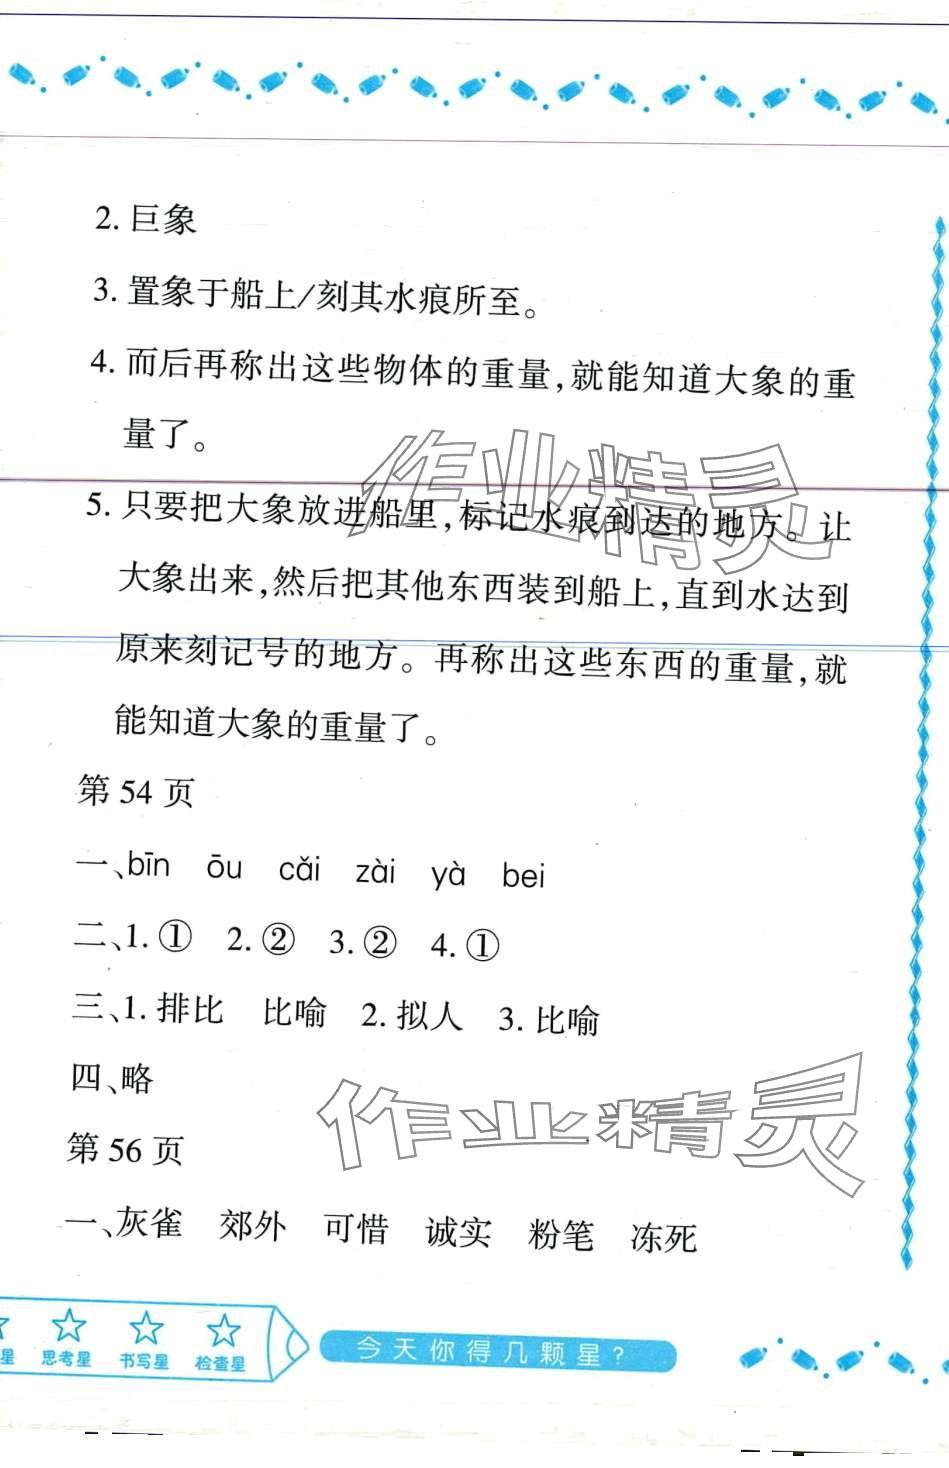 2. 巨象
3. 置象于船上/刻其水痕所至。
4. 而后再称出这些物体的重量,就能知道大象的重
量了。
5. 只要把大象放进船里,标记水痕到达的地方。让
大象出来,然后把其他东西装到船上,直到水达到
原来刻记号的地方。再称出这些东西的重量,就
能知道大象的重量了。
作业精灵
第 54 页
一、bīn ōu cǎi zài yà bei
二、1. ① 2. ② 3. ② 4. ①
三、1. 排比 比喻 2. 拟人 3. 比喻
四、略
作业精灵
第 56 页
一、灰雀 郊外 可惜 诚实 粉笔 冻死
星 思考星 书写星 检查星
今天你得几颗星?